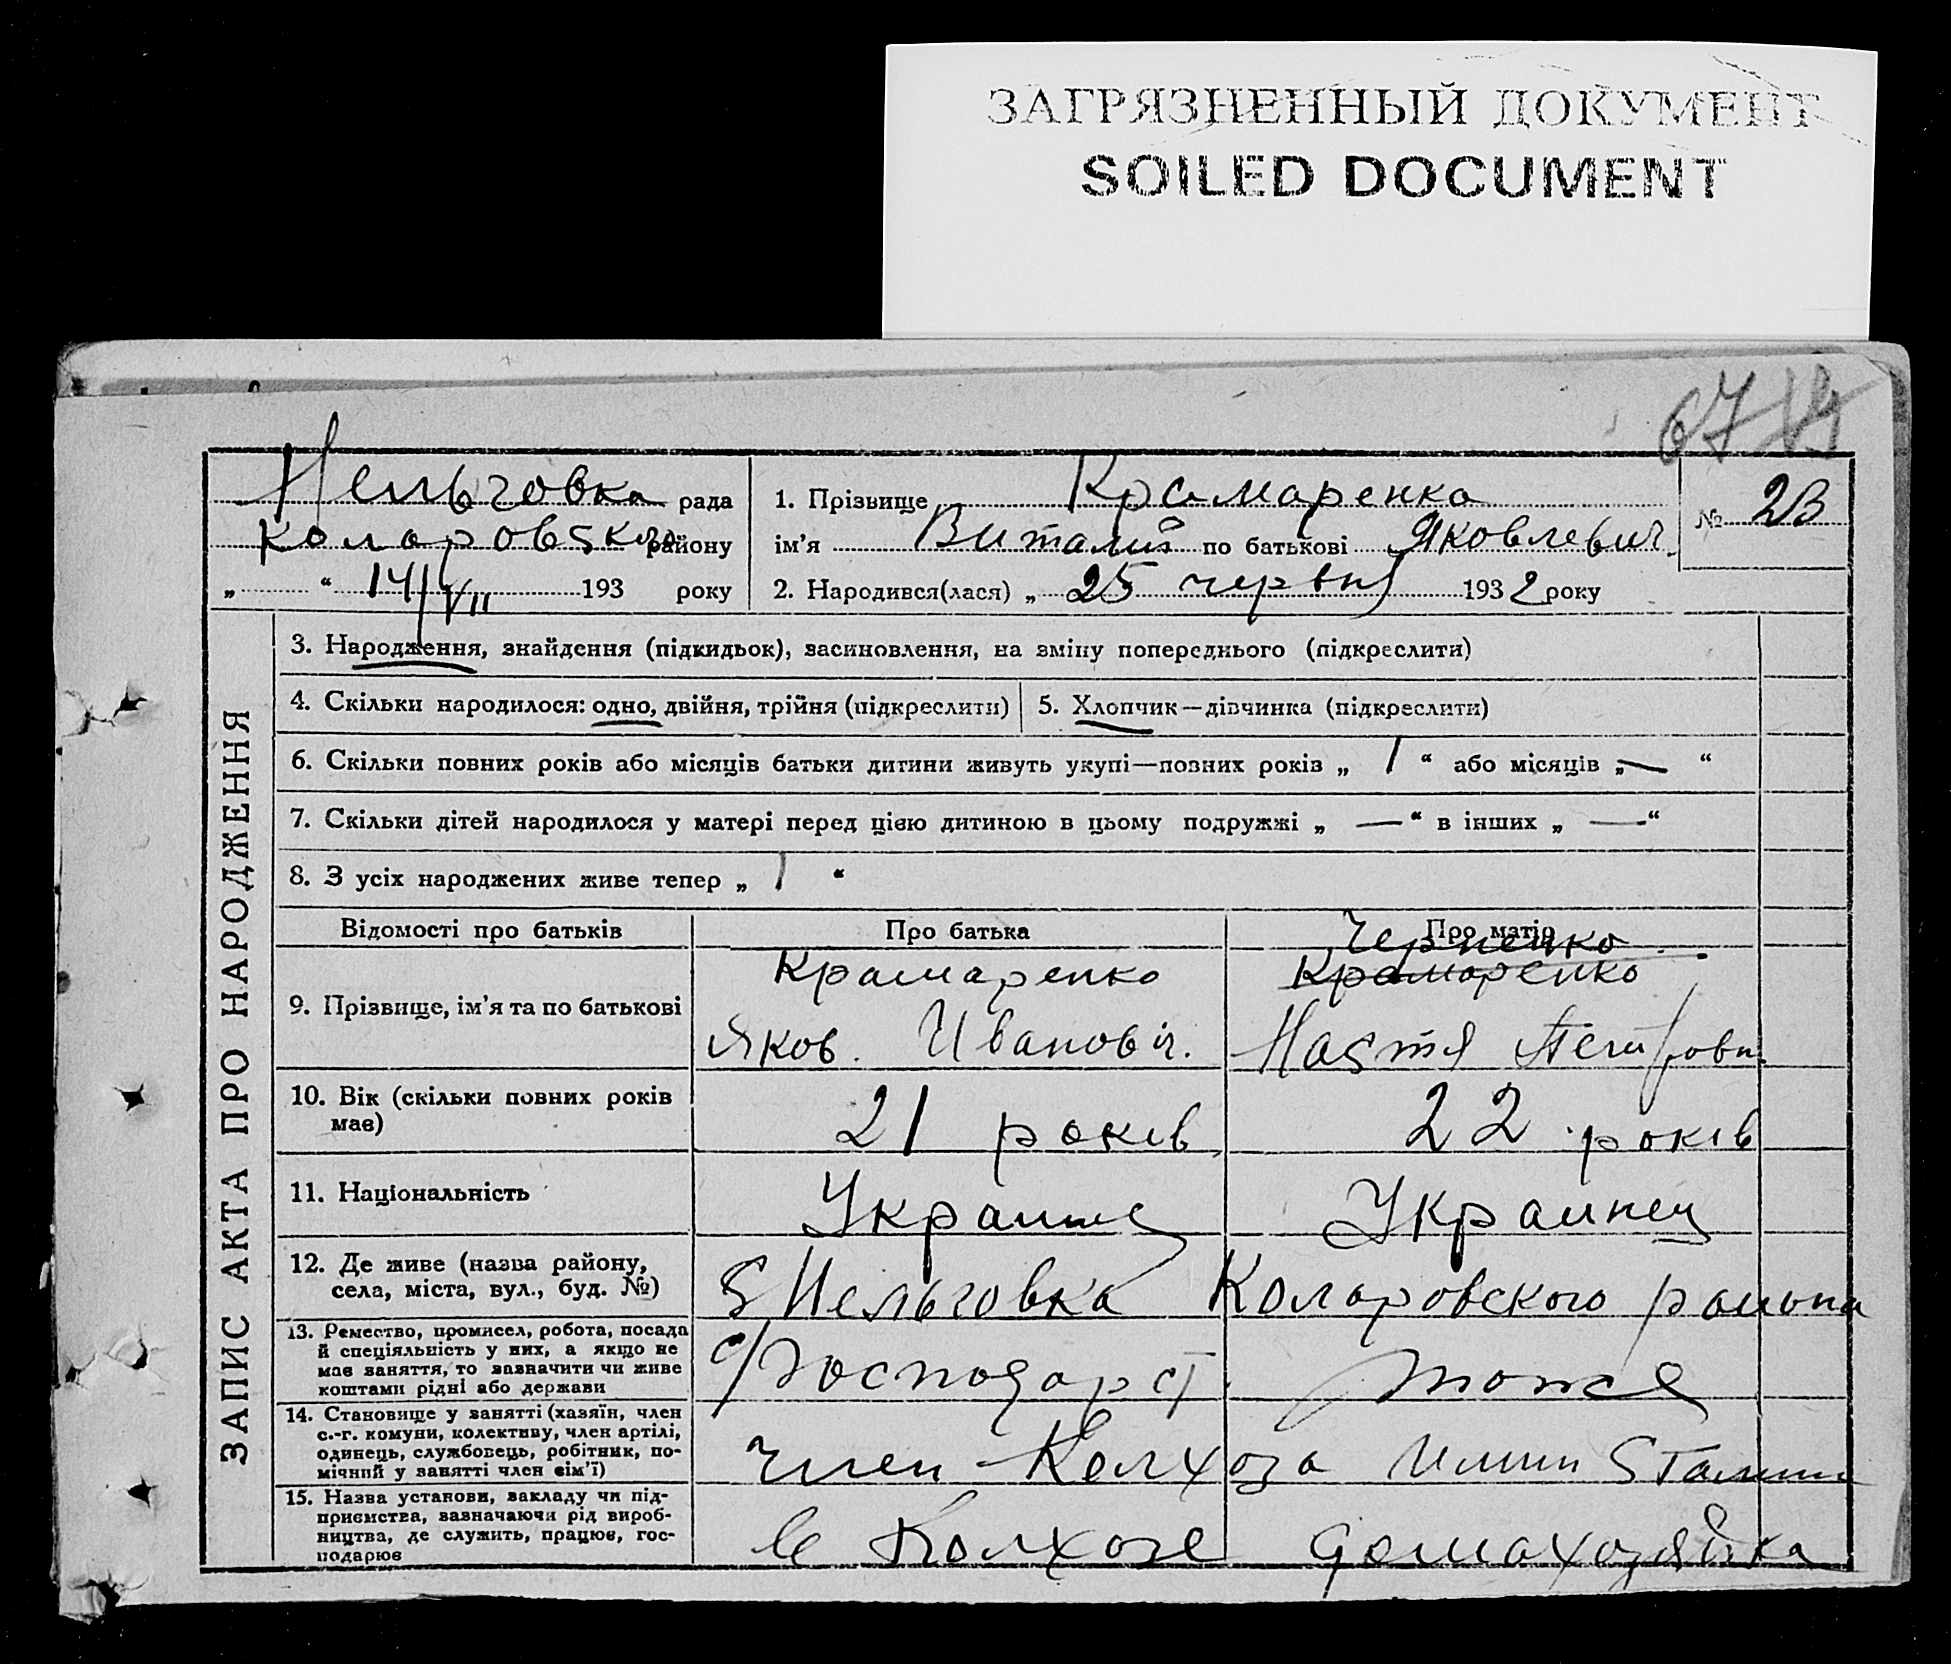 ЗАГРЯЗНЕННЫЙ ДОКУМЕНТ
SOILED DOCUMENT
67
Нельговка рада
Коларовского району
„ “ 14/VII 193 року
1. Прізвище Крамаренко
ім’я Виталий по батькові Яковлевич
2. Народився(лася) „ 25 червня 1932 року
№ 23
ЗАПИС АКТА ПРО НАРОДЖЕННЯ
3. Народження, знайдення (підкидьок), засиновлення, на зміну попереднього (підкреслити)
4. Скільки народилося: одно, двійня, трійня (підкреслити)
5. Хлопчик—дівчинка (підкреслити)
6. Скільки повних років або місяців батьки дитини живуть укупі—повних років „ 1 “ або місяців „ — “
7. Скільки дітей народилося у матері перед цією дитиною в цьому подружжі „ — “ в інших „ — “
8. З усіх народжених живе тепер „ 1 “
Відомості про батьків
Про батька
Про матір
9. Прізвище, ім’я та по батькові
Крамаренко
Яков. Иванович.
Черненко
Крамаренко
Настя Петровн.
10. Вік (скільки повних років
має)
21 років
22 років
11. Національність
Украинец
Украинец
12. Де живе (назва району,
села, міста, вул., буд. №)
с Нельговка Коларовского района
13. Ремество, промисел, робота, посада
й спеціяльність у них, а якщо не
має заняття, то зазначити чи живе
коштами рідні або держави
с/господарст
тоже
14. Становище у занятті (хазяїн, член
с.-г. комуни, колективу, член артілі,
одинець, службовець, робітник, по-
мічний у занятті член сім’ї)
член Колхоза имени Сталина
15. Назва установи, закладу чи під-
приємства, зазначаючи рід вироб-
ництва, де служить, працює, гос-
подарює
в Колхозе
домахозяйка